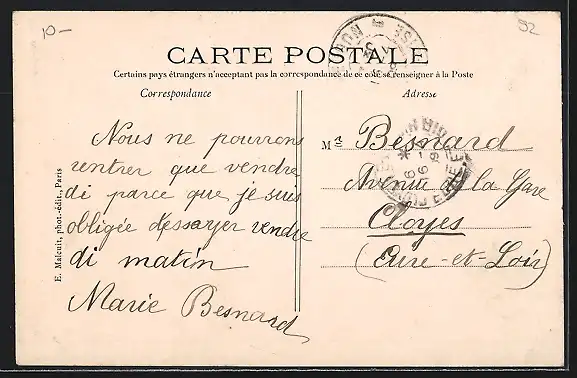 10-
92
CARTE POSTALE
Certains pays étrangers n'acceptant pas la correspondance de ce côté se renseigner à la Poste
Correspondance
Adresse
Nous ne pourrons
rentrer que vendre
di parce que je suis
obligée d'essayer vendre
di matin
Marie Besnard
Ma Besnard
Avenue de la Gare
Cloyes
(Eure-et-Loir)
E. Malcuit, phot.-édit., Paris